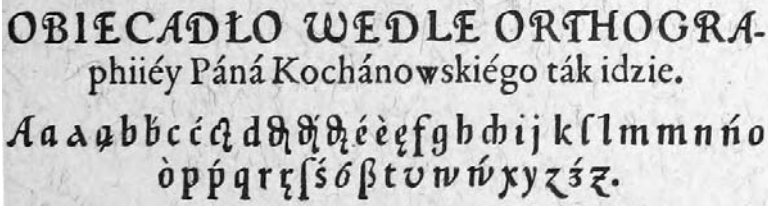 OBIECADŁO WEDLE ORTHOGRA-
phiiéy Páná Kochánowskiégo ták idzie.
A a a ą b b́ c ć cz d dz dź dż é è ę f g h ch i j k ł l m m n ń o
ò p ṕ q r rz ſ ś ó ß t v w ẃ x y z ź ż.